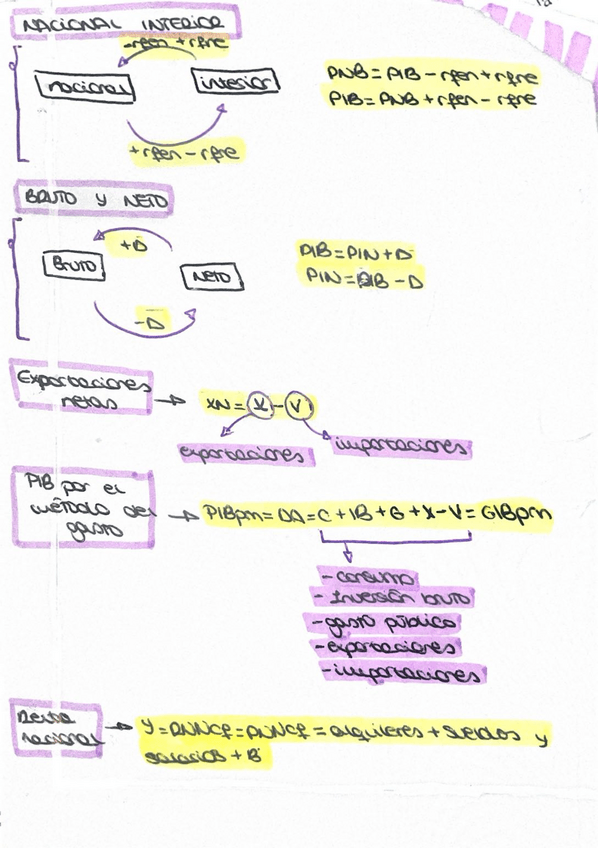 NACIONAL INTERIOR
-rfen +rfre
nacional
interior
PNB = PIB - rfen + rfre
PIB = PNB + rfen - rfre
+rfen - rfre
BRUTO Y NETO
+D
BRUTO
NETO
-D
PIB = PIN + D
PIN = PIB - D
Exportaciones
netas
XN = X - V
exportaciones
importaciones
PIB por el
método del
gasto
PIBpm = DA = C + IB + G + X - V = GIBpm
- consumo
- Inversión bruta
- gasto público
- exportaciones
- importaciones
Renta
nacional
Y = PNNcf = alquileres + sueldos y
salarios + B